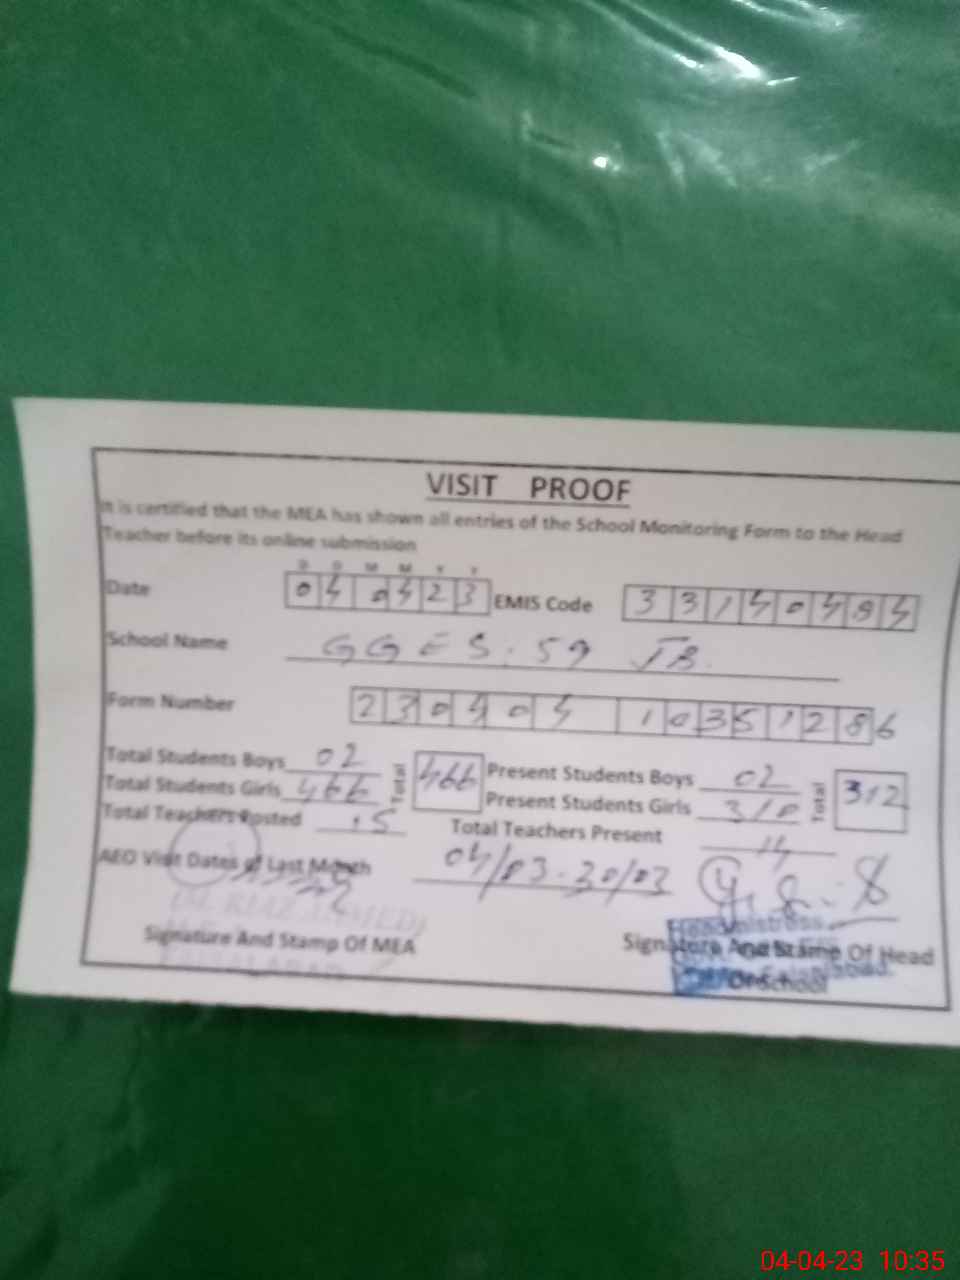 VISIT PROOF
It is certified that the MEA has shown all entries of the School Monitoring Form to the Head
Teacher before its online submission
D D M M Y Y
Date 04 04 23 EMIS Code 33140484
School Name GGES. 59 JB.
Form Number 230404 10351286
Total Students Boys 02 Total 466 Present Students Boys 02 Total 312
Total Students Girls 466 Present Students Girls 310
Total Teachers Posted 15 Total Teachers Present 14
AEO Visit Dates of Last Month 04/03 - 30/03
Headmistress
Signature And Stamp Of MEA Signature And Stamp Of Head
Of School
04-04-23 10:35